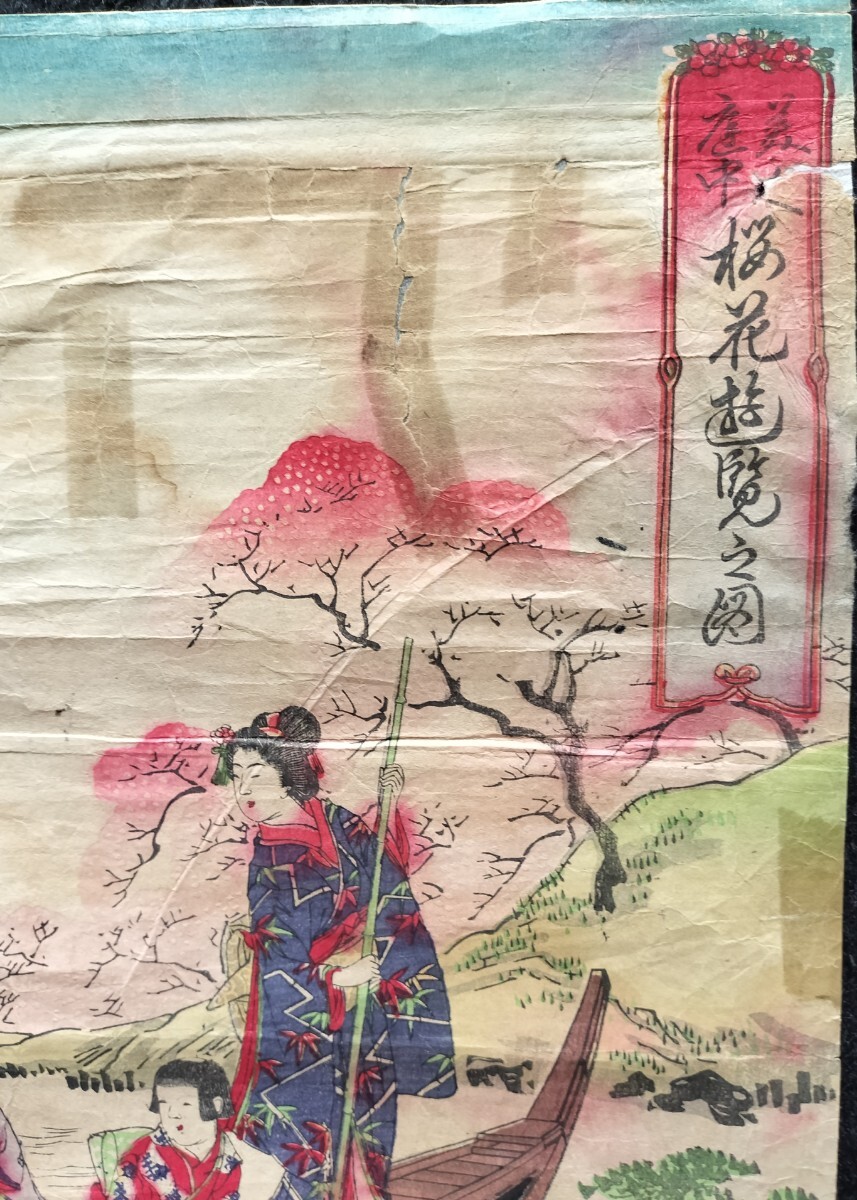 美人
庭中
桜花遊覧之図